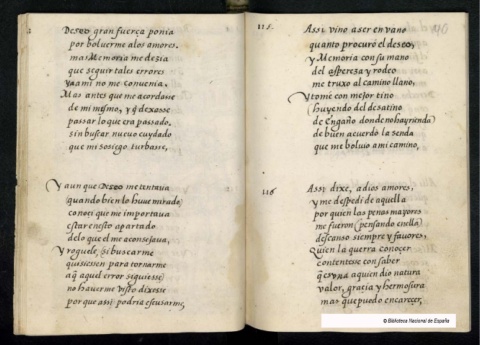 Deseo gran fuerça ponia
por boluerme alos amores.
mas Memoria me dezia
que seguir tales errores
ya ami no me conuenia.
Mas antes que me acordasse
de mi mesmo, y q̃ dexosse
passar lo que era passado.
sin buscar nueuo cuydado
que mi sosiego turbasse,
Y aun que Deseo me tentaua
quando bien lo huue mirado
conoci que me importaua
estar enesto apartado
delo que el me aconsejaua,
Y roguele, si buscarme
quisiessen para tornarme
aq̃ aquel error siguiesse
no hauerme visto dixesse
por que assi podria escusarme,
115.
Assi vino a ser en vano
quanto procuró el deseo,
y Memoria con su mano
del aspereza y rodeo
me truxo al camino llano,
Y tomè con mejor tino
(huyendo del desatino
de Engaño donde no hay rienda)
de buen acuerdo la senda
que me boluio ami camino,
116
Assi dixe, adios amores,
y me despedi de aquella
por quien las penas mayores
me fueron (pensando enella)
descanso siempre y fauores,
Quien la querra conoçer
contentesse con saber
q̃ es vna aquien dio natura
valor, gracia y hermosura
mas que puedo encareçer,
© Biblioteca Nacional de España